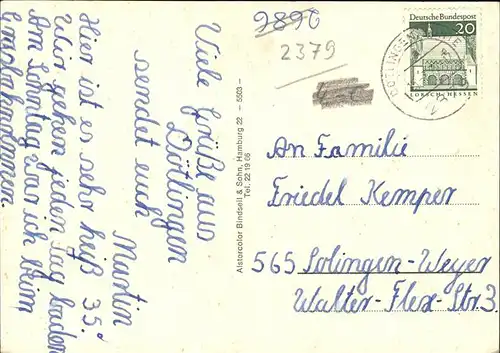 9896
2379
Deutsche Bundespost
20
LORSCH/HESSEN
DÖTLINGEN
Viele Grüße aus
Dötlingen
sendet euch
Martin
Hier ist es sehr heiß 35°
Wir gehen jeden Tag baden
Am Sonntag war ich beim
Grasbahnrennen.
Alstercolor Bindseil & Sohn, Hamburg 22 - 5503 -
Tel. 22 19 05
An Familie
Friedel Kemper
565 Solingen-Weyer
Walter-Flex-Str.3.